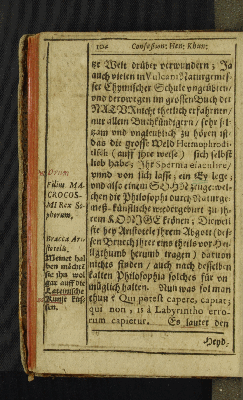 104 Confession: Hen: Khun:
tze Welt drüber verwundern; Ja
auch vielen im Vulcani Naturgemes-
ser Chymischer Schule ungeübten/
und verorwegen im grossen Buch der
NATUR nicht thetlich erfahrnen/
nur allein Buchkündigern/ sehr selt
zam und ungleublich zu hören ist:
das die grosse Welt Hermaphrodi-
tisch (auff ihre weise) sich selbst
lieb habe; Ihr Sperma ejaculire/
unnd von sich lasse; ein Ey lege;
und also einem SOHN zeuge: wel-
chen die Philosophi durch Naturge-
mess-künstliche wiedergeburt zu ih-
rem KÖNIGE krönen; Dieweil
sie bey Aristotele ihrem Abgott (des-
sen Bruch ihrer eins theils vor Hei-
ligthumb herumb tragen) darvon
nichts finden/ auch nach desselben
kalten Philosophia solches für un-
müglich halten. Nun was sol man
thun? Qui potest capere, capiat;
qui non, is à Labyrintho erro-
rum capietur. Es lautet den
Heyd-
Filius MA-
CROCOS-
MI Rex Si-
pherum.
Bracca Ari-
stotelis.
Meinet hal
ben möcht
sie ihn wol
gar auff die
Lateinische
Kunst küs-
sen.